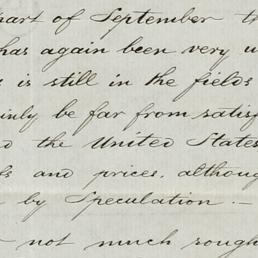 part of September th
has again been very u
is still in the fields
inly be far from satisf
the United States
s and prices, althoug
by Speculation. —
not much rough